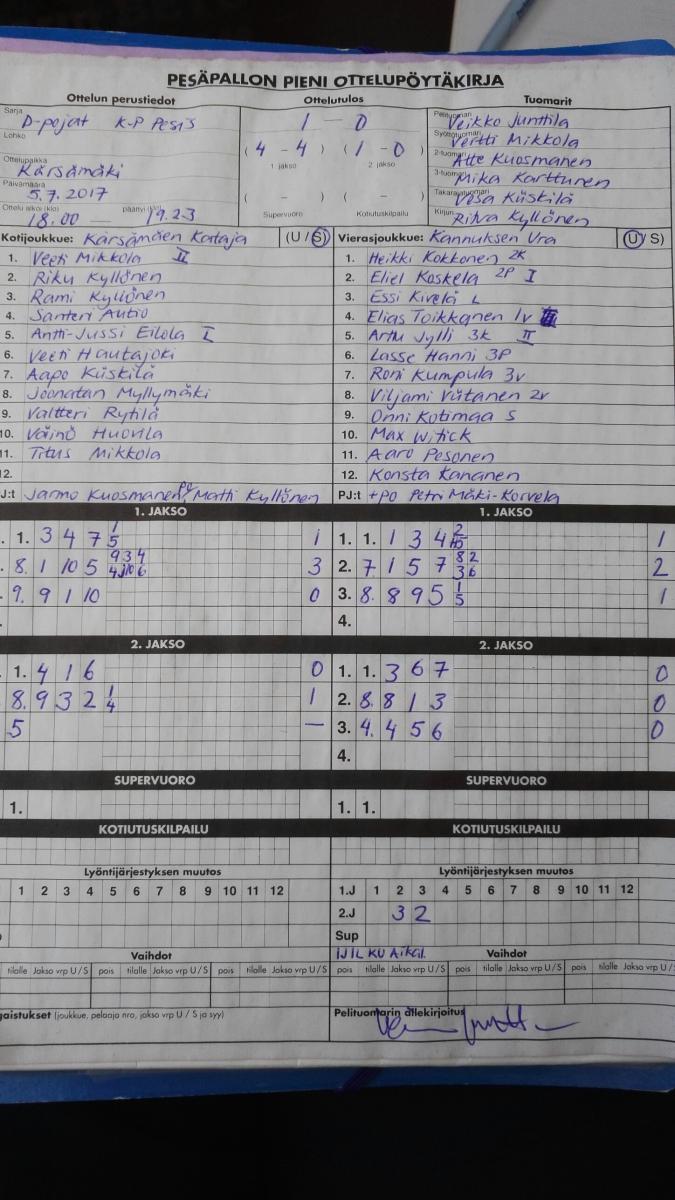 PESÄPALLON PIENI OTTELUPÖYTÄKIRJA
Ottelun perustiedot Ottelutulos Tuomarit
Sarja D-pojat K-P Pesis
Lohko
Ottelupaikka Kärsämäki
Päivämäärä 5.7.2017
Ottelu alkoi (klo) 18.00 — päättyi (klo) 19.23
1 — 0
(4 - 4) (1 - 0)
1 jakso 2 jakso
( - ) ( - )
Supervuoro Kotiutuskilpailu
Pelituomari Veikko Junttila
Syöttötuomari Vertti Mikkola
2-tuomari Atte Kuosmanen
3-tuomari Mika Karttunen
Takarajatuomari Vesa Kiiskilä
Kirjuri Ritva Kyllönen
Kotijoukkue: Kärsämäen Kataja (U/S)
1. Veeti Mikkola II
2. Riku Kyllönen
3. Rami Kyllönen
4. Santeri Autio
5. Antti-Jussi Eilola I
6. Veeti Hautajoki
7. Aapo Kiiskilä
8. Joonatan Myllymäki
9. Valtteri Rytilä
10. Väinö Huovila
11. Titus Mikkola
12.
J:t Jarmo Kuosmanen, PO Matti Kyllönen
Vierasjoukkue: Kannuksen Ura (U/S)
1. Heikki Kokkonen 2K
2. Eliel Koskela 2P I
3. Essi Kivelä L
4. Elias Toikkanen 1v
5. Arttu Jylli 3K II
6. Lasse Hanni 3P
7. Roni Kumpula 3v
8. Viljami Viitanen 2v
9. Onni Kotimaa S
10. Max Witick
11. Aaro Pesonen
12. Konsta Kananen
PJ:t +PO Petri Mäki-Korvela
1. JAKSO
. 1. 3 4 7 1/5 1
. 8. 1 10 5 9 3 4 3
. 9. 9 1 10 0
2. JAKSO
1. 4 1 6 0
8. 9 3 2 1/4 1
5 —
SUPERVUORO
1.
KOTIUTUSKILPAILU
Lyöntijärjestyksen muutos
1 2 3 4 5 6 7 8 9 10 11 12
Vaihdot
tilalle Jakso vrp U/S pois tilalle Jakso vrp U/S pois tilalle Jakso vrp U/S
gaistukset (joukkue, pelaaja nro, jakso vrp U / S ja syy)
1. JAKSO
1. 1. 1 3 4 1
2. 7. 1 5 7 8 2 3 6 2
3. 8. 8 9 5 1/5 1
4.
2. JAKSO
1. 1. 3 6 7 0
2. 8. 8 1 3 0
3. 4. 4 5 6 0
4.
SUPERVUORO
1. 1.
KOTIUTUSKILPAILU
Lyöntijärjestyksen muutos
1.J 1 2 3 4 5 6 7 8 9 10 11 12
2.J 3 2
Sup
Vaihdot
pois tilalle Jakso vrp U/S pois tilalle Jakso vrp U/S pois tilalle Jakso vrp U/S
Pelituomarin allekirjoitus